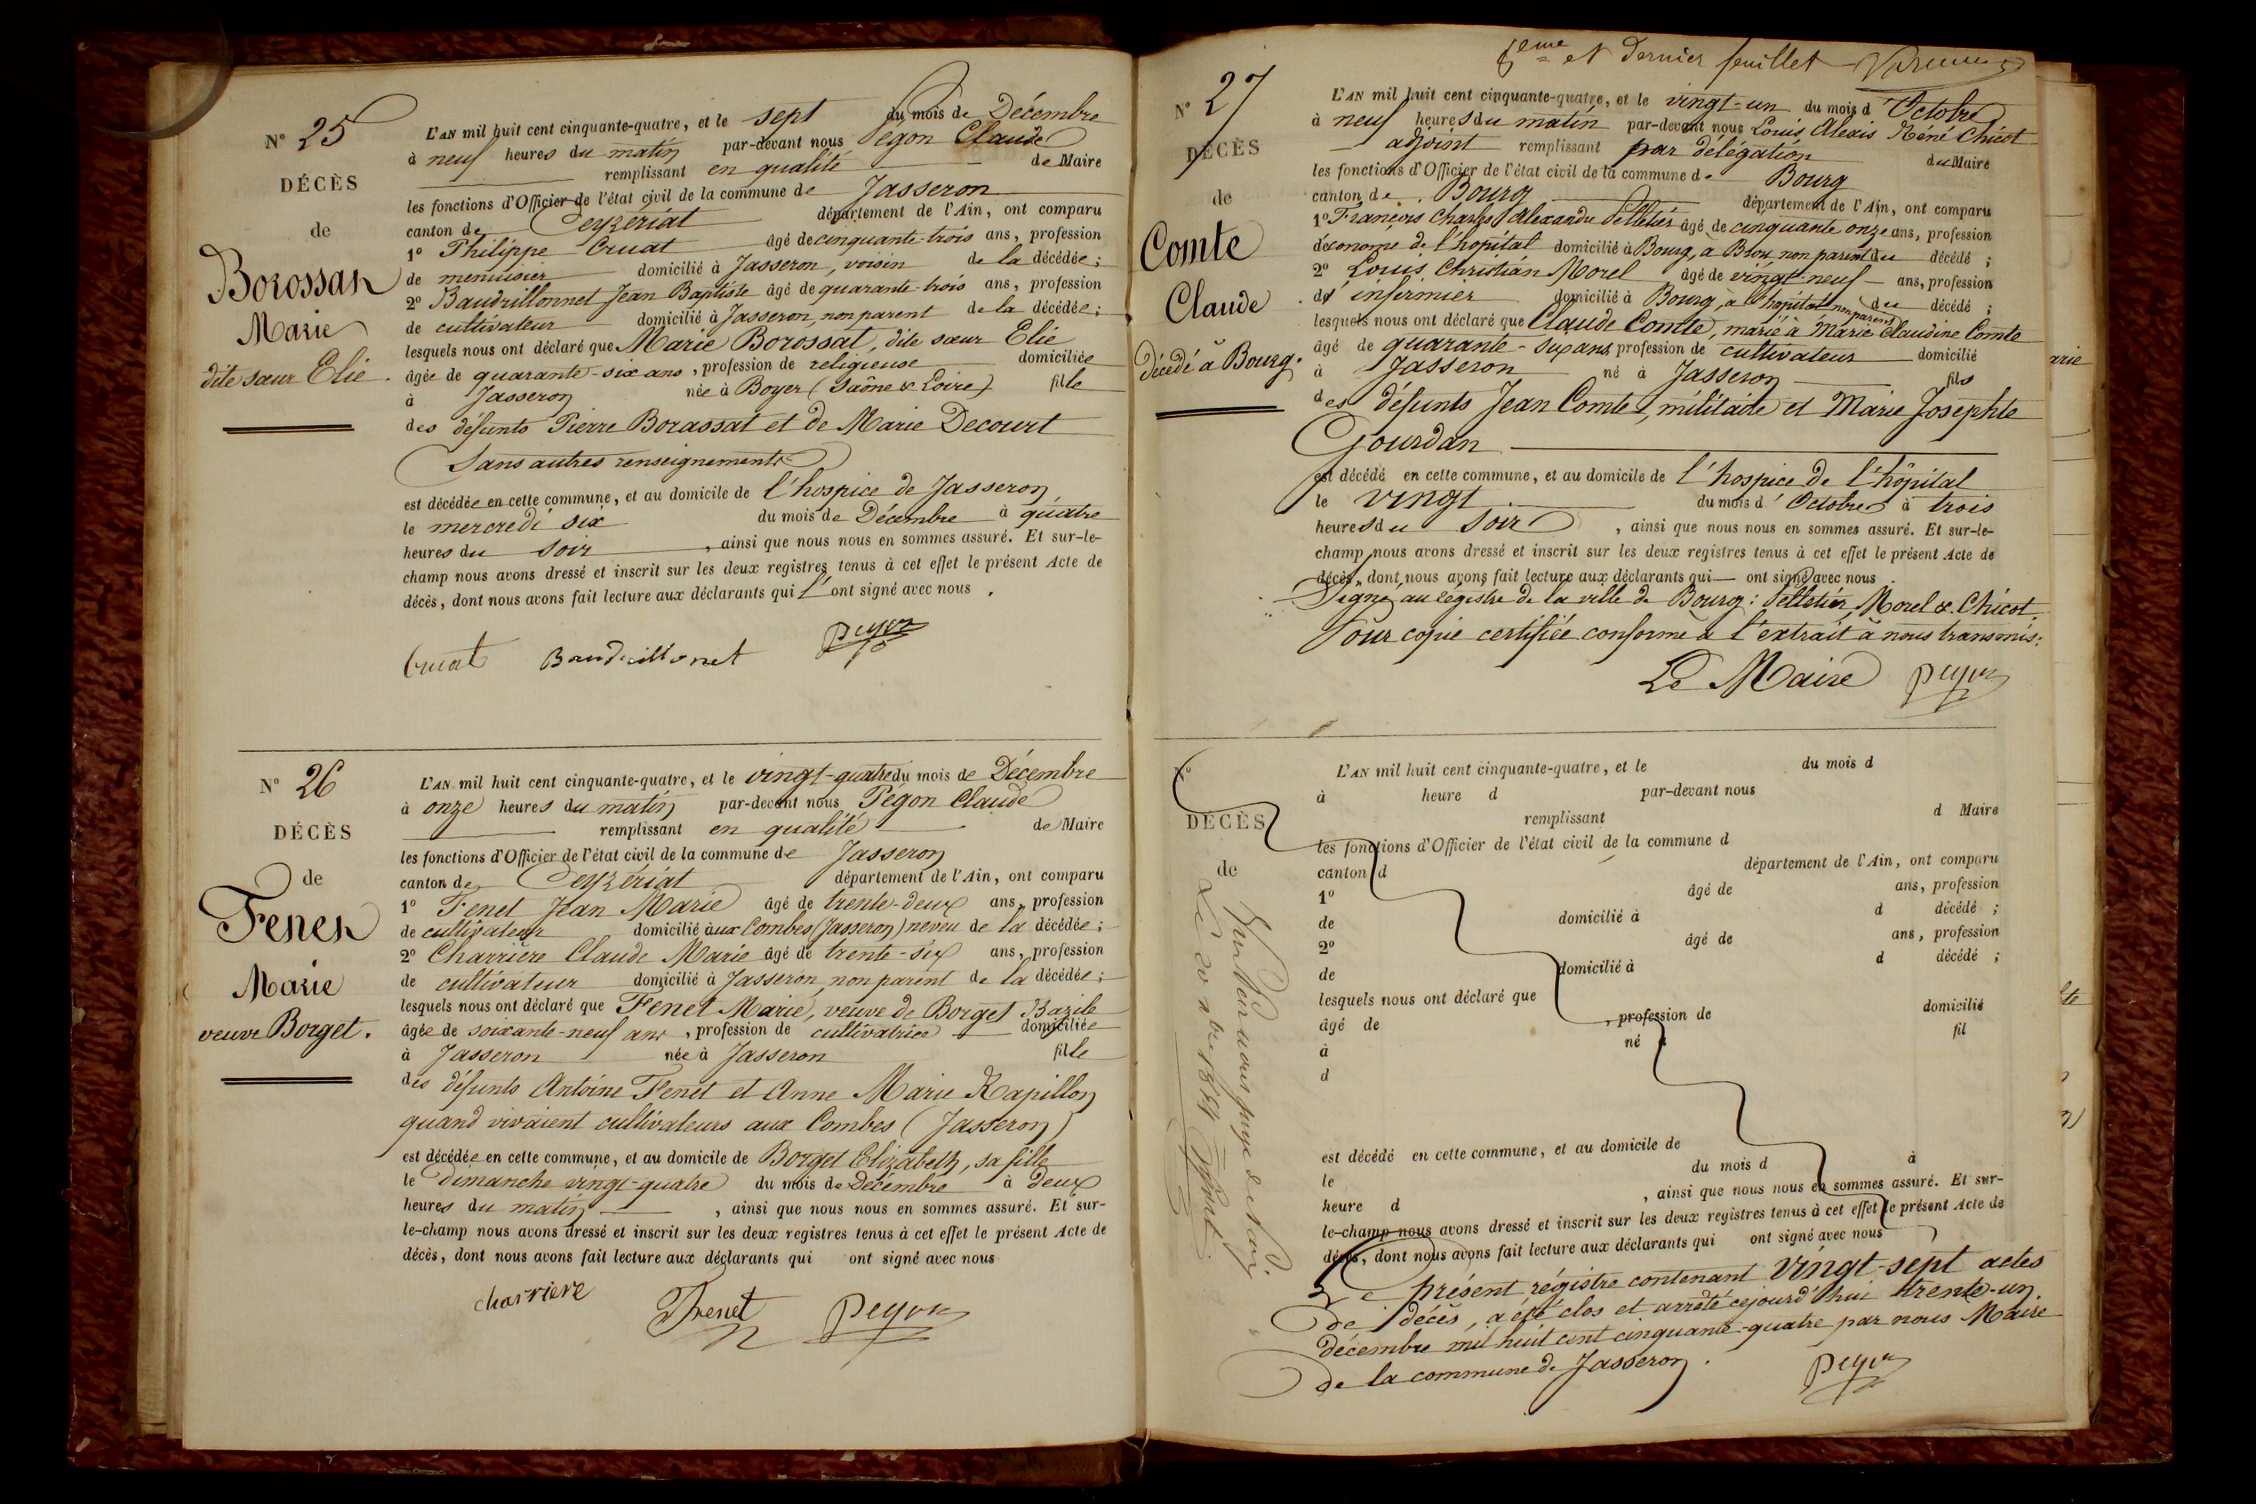 N° 25
DÉCÈS
de
Borossat
Marie
dite sœur Elie.
L'AN mil huit cent cinquante-quatre, et le sept du mois de Décembre
à neuf heures du matin par-devant nous Pegon Claude
remplissant en qualité de Maire
les fonctions d'Officier de l'état civil de la commune de Jasseron
canton de Ceyzériat département de l'Ain, ont comparu
1° Philippe Cruat âgé de cinquante-trois ans, profession
de menuisier domicilié à Jasseron, voisin de la décédée;
2° Baudrillonnet Jean Baptiste âgé de quarante-trois ans, profession
de cultivateur domicilié à Jasseron, non parent de la décédée;
lesquels nous ont déclaré que Marie Borossat, dite sœur Elie
âgée de quarante-six ans, profession de religieuse domiciliée
à Jasseron née à Boyer (Saône & Loire) fille
des défunts Pierre Borassat et de Marie Decourt
Sans autres renseignements
est décédée en cette commune, et au domicile de l'hospice de Jasseron
le mercredi six du mois de Décembre à quatre
heures du soir, ainsi que nous nous en sommes assuré. Et sur-le-
champ nous avons dressé et inscrit sur les deux registres tenus à cet effet le présent Acte de
décès, dont nous avons fait lecture aux déclarants qui l'ont signé avec nous.
Cruat Baudrillonet Pegon
N° 26
DÉCÈS
de
Fenet
Marie
veuve Borget.
L'AN mil huit cent cinquante-quatre, et le vingt-quatre du mois de Décembre
à onze heures du matin par-devant nous Pégon Claude
remplissant en qualité de Maire
les fonctions d'Officier de l'état civil de la commune de Jasseron
canton de Ceyzériat département de l'Ain, ont comparu
1° Fenet Jean Marie âgé de trente-deux ans, profession
de cultivateur domicilié aux Combes (Jasseron) neveu de la décédée;
2° Charrière Claude Marie âgé de trente-six ans, profession
de cultivateur domicilié à Jasseron, non parent de la décédée;
lesquels nous ont déclaré que Fenet Marie, veuve de Borget Bazile
âgée de soixante-neuf ans, profession de cultivatrice domiciliée
à Jasseron née à Jasseron fille
des défunts Antoine Fenet et Anne Marie Rapillon
quand vivaient cultivateurs aux Combes (Jasseron)
est décédée en cette commune, et au domicile de Borget Elizabeth, sa fille
le dimanche vingt-quatre du mois de Décembre à deux
heures du matin, ainsi que nous nous en sommes assuré. Et sur-
le-champ nous avons dressé et inscrit sur les deux registres tenus à cet effet le présent Acte de
décès, dont nous avons fait lecture aux déclarants qui ont signé avec nous
charriere Fenet Pegon
5eme et dernier feuillet
N° 27
DÉCÈS
de
Comte
Claude
décédé à Bourg.
L'AN mil huit cent cinquante-quatre, et le vingt-un du mois d'Octobre
à neuf heures du matin par-devant nous Louis Alexis Réné Chicot
adjoint remplissant par délégation du Maire
les fonctions d'Officier de l'état civil de la commune de Bourg
canton de Bourg département de l'Ain, ont comparu
1° François Charles Alexandre Pelletier âgé de cinquante onze ans, profession
d'économe de l'hopital domicilié à Bourg, à Brou, non parent du décédé;
2° Louis Christian Morel âgé de vingt-neuf ans, profession
d'infirmier domicilié à Bourg, à l'hopital non parent du décédé;
lesquels nous ont déclaré que Claude Comte, marié à Marie Claudine Comte
âgé de quarante-six ans, profession de cultivateur domicilié
à Jasseron né à Jasseron fils
des défunts Jean Comte, militaire et Marie Josephte
Gourdan
est décédé en cette commune, et au domicile de l'hospice de l'hôpital
le vingt du mois d'Octobre à trois
heures du soir, ainsi que nous nous en sommes assuré. Et sur-le-
champ nous avons dressé et inscrit sur les deux registres tenus à cet effet le présent Acte de
décès, dont nous avons fait lecture aux déclarants qui ont signé avec nous.
Signé au régistre de la ville de Bourg: Pelletier, Morel & Chicot.
Pour copie certifiée conforme à l'extrait à nous transmis:
Le Maire Pegon
N°
DÉCÈS
de
L'AN mil huit cent cinquante-quatre, et le du mois d
à heure d par-devant nous
remplissant d Maire
les fonctions d'Officier de l'état civil de la commune d
canton d département de l'Ain, ont comparu
1° âgé de ans, profession
de domicilié à d décédé;
2° âgé de ans, profession
de domicilié à d décédé;
lesquels nous ont déclaré que
âgé de, profession de domicilié
à né à fil
d
est décédé en cette commune, et au domicile de
le du mois d à
heure d, ainsi que nous nous en sommes assuré. Et sur-
le-champ nous avons dressé et inscrit sur les deux registres tenus à cet effet le présent Acte de
décès, dont nous avons fait lecture aux déclarants qui ont signé avec nous
Le présent régistre contenant vingt-sept actes
de décès, a été clos et arrêté cejourd'hui trente-un
décembre mil huit cent cinquante-quatre par nous Maire
de la commune de Jasseron.
Pegon